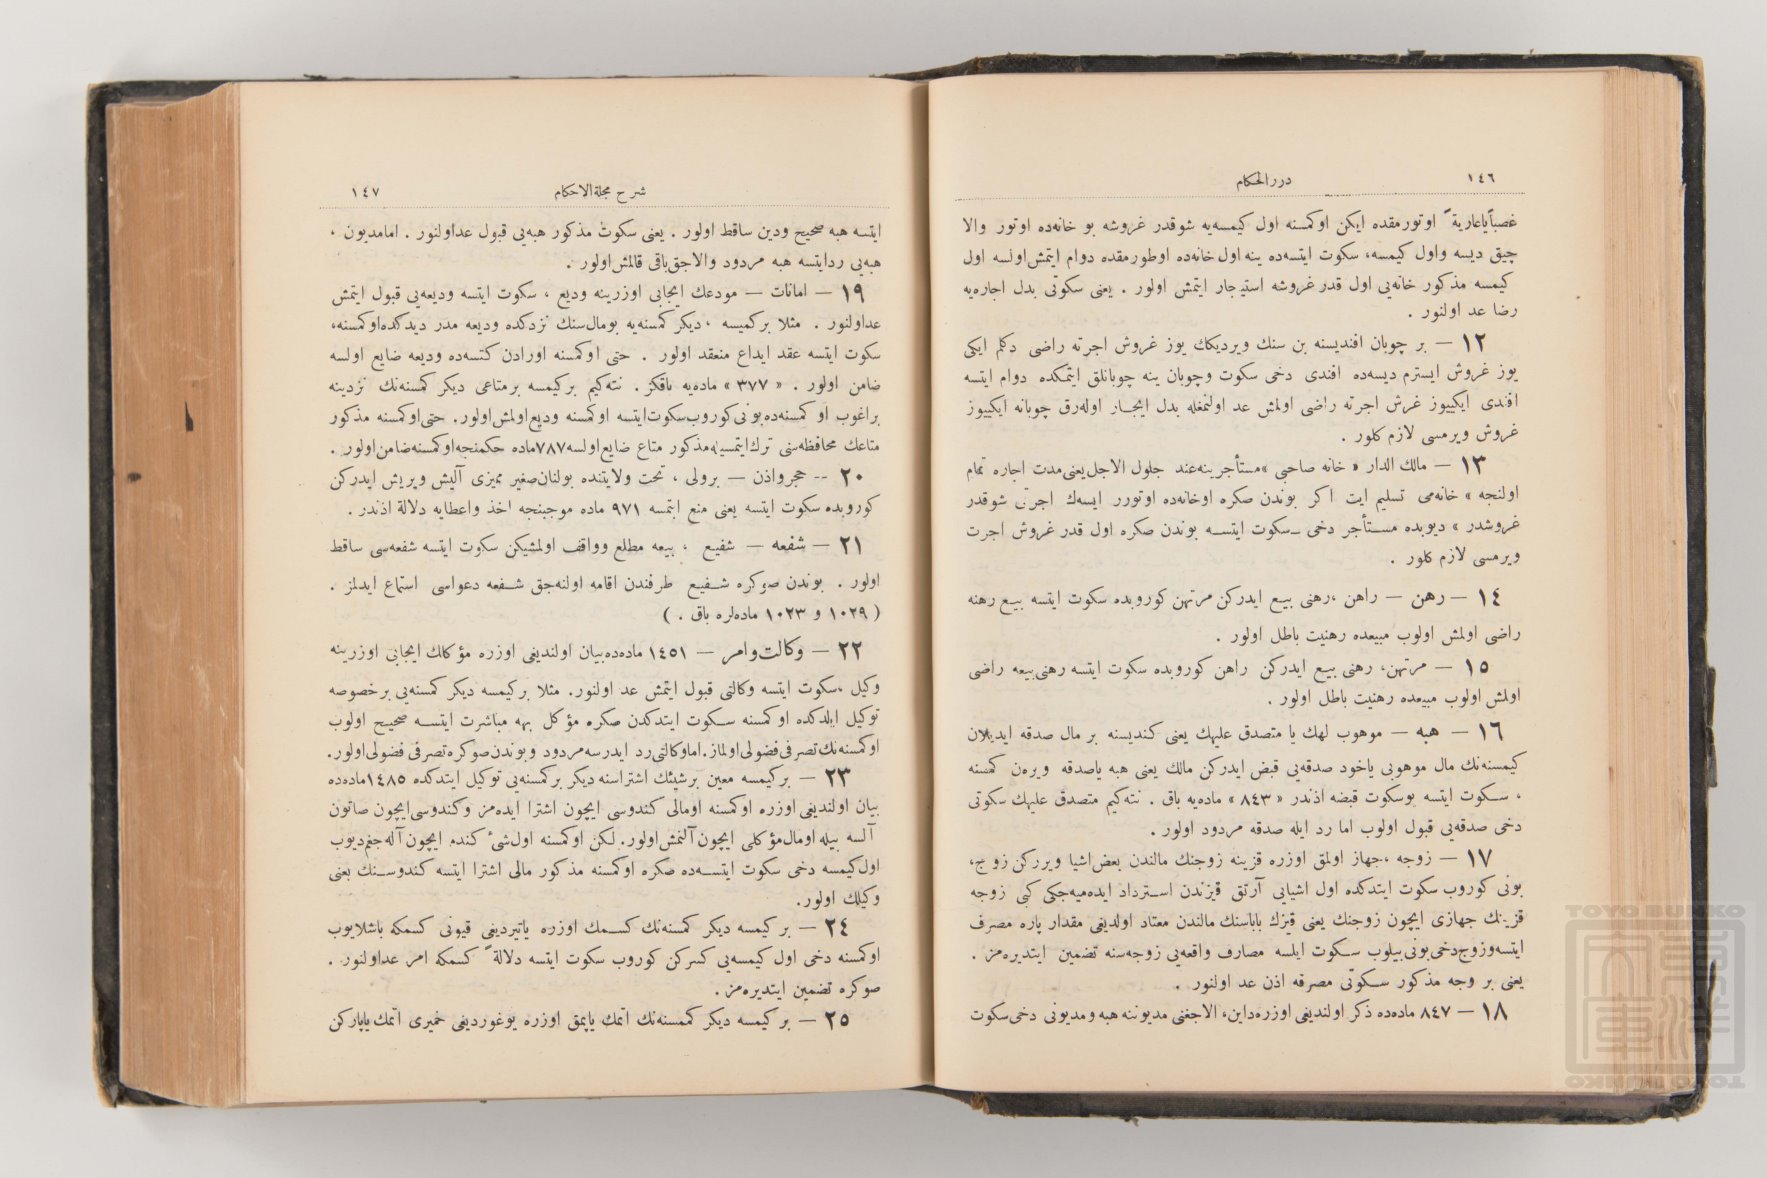 ١٤٦
دررالحكام
غصباً ياعاريةً اوتورمقده ايكن اوكمسنه اول كيمسه‌يه شوقدر غروشه بو خانه‌ده اوتور والا
چيق ديسه واول كيمسه، سكوت ايتسه‌ده ينه اول خانه‌ده اوطورمقده دوام ايتمش اولسه اول
كيمسه مذكور خانه‌يى اول قدر غروشه استيجار ايتمش اولور . يعنى سكوتى بدل اجاره‌يه
رضا عد اولنور .
١٢ — بر چوبان افنديسنه بن سنك ويرديكك يوز غروش اجرته راضى دكلم ايكى
يوز غروش ايسترم ديسه‌ده افندى دخى سكوت وچوبان ينه چوبانلق ايتمكده دوام ايتسه
افندى ايكييوز غرش اجرته راضى اولمش عد اولنمغله بدل ايجار اوله‌رق چوبانه ايكييوز
غروش ويرمسى لازم كلور .
١٣ — مالك الدار « خانه صاحبى » مستأجرينه عند حلول الاجل يعنى مدت اجاره تمام
اولنجه » خانه‌مى تسليم ايت اكر بوندن صكره اوخانه‌ده اوتورر ايسه‌ك اجرتى شوقدر
غروشدر » ديوبده مستأجر دخى سكوت ايتسه بوندن صكره اول قدر غروش اجرت
ويرمسى لازم كلور .
١٤ — رهن — راهن ، رهنى بيع ايدركن مرتهن كوروبده سكوت ايتسه بيع رهنه
راضى اولمش اولوب مبيعده رهنيت باطل اولور .
١٥ — مرتهن، رهنى بيع ايدركن راهن كوروبده سكوت ايتسه رهنى بيعه راضى
اولمش اولوب مبيعده رهنيت باطل اولور .
١٦ — هبه — موهوب لهك يا متصدق عليهك يعنى كنديسنه بر مال صدقه ايديلان
كيمسنه‌نك مال موهوبى ياخود صدقه‌يى قبض ايدركن مالك يعنى هبه ياصدقه ويره‌ن كمسنه
، سكوت ايتسه بوسكوت قبضه اذندر « ٨٤٣ » ماده‌يه باق . نته‌كيم متصدق عليهك سكوتى
دخى صدقه‌يى قبول اولوب اما رد ايله صدقه مردود اولور .
١٧ — زوجه ، جهاز اولمق اوزره قزينه زوجنك مالندن بعض اشيا ويرركن زوج،
بونى كوروب سكوت ايتدكده اول اشيايى آرتق قيزندن استرداد ايده‌ميه‌جكى كبى زوجه
قزينك جهازى ايچون زوجنك يعنى قيزك باباسنك مالندن معتاد اولديغى مقدار پاره مصرف
ايتسه وزوج دخى بونى بيلوب سكوت ايلسه مصارف واقعه‌يى زوجه‌سنه تضمين ايتديره‌مز .
يعنى بر وجه مذكور سكوتى مصرفه اذن عد اولنور .
١٨ — ٨٤٧ ماده‌ده ذكر اولنديغى اوزره داين، الاجغنى مديوننه هبه ومديونى دخى سكوت
شرح مجلة الاحكام
١٤٧
ايتسه هبه صحيح ودين ساقط اولور . يعنى سكوت مذكور هبه‌يى قبول عد اولنور . اما مديون ،
هبه‌يى رد ايتسه هبه مردود والاجق باقى قالمش اولور .
١٩ — امانات — مودعك ايجابى اوزرينه وديع ، سكوت ايتسه وديعه‌يى قبول ايتمش
عد اولنور . مثلا بر كميسه ، ديكر كمسنه‌يه بو مال سنك نزدكده وديعه مدر ديدكده اوكمسنه،
سكوت ايتسه عقد ايداع منعقد اولور . حتى اوكمسنه اورادن كتسه‌ده وديعه ضايع اولسه
ضامن اولور . « ٣٧٧ » ماده‌يه باقكز . نته‌كيم بر كيمسه بر متاعى ديكر كمسنه‌نك نزدينه
براغوب او كمسنه‌ده بونى كوروب سكوت ايتسه اوكمسنه وديع اولمش اولور. حتى اوكمسنه مذكور
متاعك محافظه‌سنى ترك ايتمسيله مذكور متاع ضايع اولسه ٧٨٧ ماده حكمنجه اوكمسنه ضامن اولور .
٢٠ -- حجر واذن — برولى ، تحت ولايتنده بولنان صغير مميزى آليش ويريش ايدركن
كوروبده سكوت ايتسه يعنى منع ايتمسه ٩٧١ ماده موجبنجه اخذ واعطايه دلالة اذندر .
٢١ — شفعه — شفيع ، بيعه مطلع وواقف اولمشيكن سكوت ايتسه شفعه‌سى ساقط
اولور . بوندن صوكره شفيع طرفندن اقامه اولنه‌جق شفعه دعواسى استماع ايدلمز .
( ١٠٢٩ و ١٠٢٣ ماده‌لره باق . )
٢٢ — وكالت وامر — ١٤٥١ ماده‌ده بيان اولنديغى اوزره مؤكلك ايجابى اوزرينه
وكيل ، سكوت ايتسه وكالتى قبول ايتمش عد اولنور. مثلا بر كيمسه ديكر كمسنه‌يى بر خصوصه
توكيل ايلدكده اوكمسنه سكوت ايتدكدن صكره مؤكل بهه مباشرت ايتسه صحيح اولوب
اوكمسنه‌نك تصرفى فضولى اولماز. اما وكالتى رد ايدرسه مردود وبوندن صوكره تصرفى فضولى اولور.
٢٣ — بر كيمسه معين بر شيئك اشتراسنه ديكر بر كمسنه‌يى توكيل ايتدكده ١٤٨٥ ماده‌ده
بيان اولنديغى اوزره اوكمسنه اومالى كندوسى ايچون اشترا ايده‌مز وكندوسى ايچون صاتون
آلسه بيله اومال مؤكلى ايچون آلنمش اولور. لكن اوكمسنه اول شىء كندم ايچون آله‌جغم ديوب
اول كيمسه دخى سكوت ايتسه‌ده صكره اوكمسنه مذكور مالى اشترا ايتسه كندوسنك يعنى
وكيلك اولور.
٢٤ — بر كيمسه ديكر كمسنه‌نك كسمك اوزره ياتيرديغى قيونى كسمكه باشلايوب
اوكمسنه دخى اول كيمسه‌يى كسركن كوروب سكوت ايتسه دلالةً كسمكه امر عد اولنور .
صوكره تضمين ايتديره‌مز .
٢٥ — بر كيمسه ديكر كمسنه‌نك اتمك ياپمق اوزره يوغورديغى خميرى اتمك ياپاركن
TOYO BUNKO